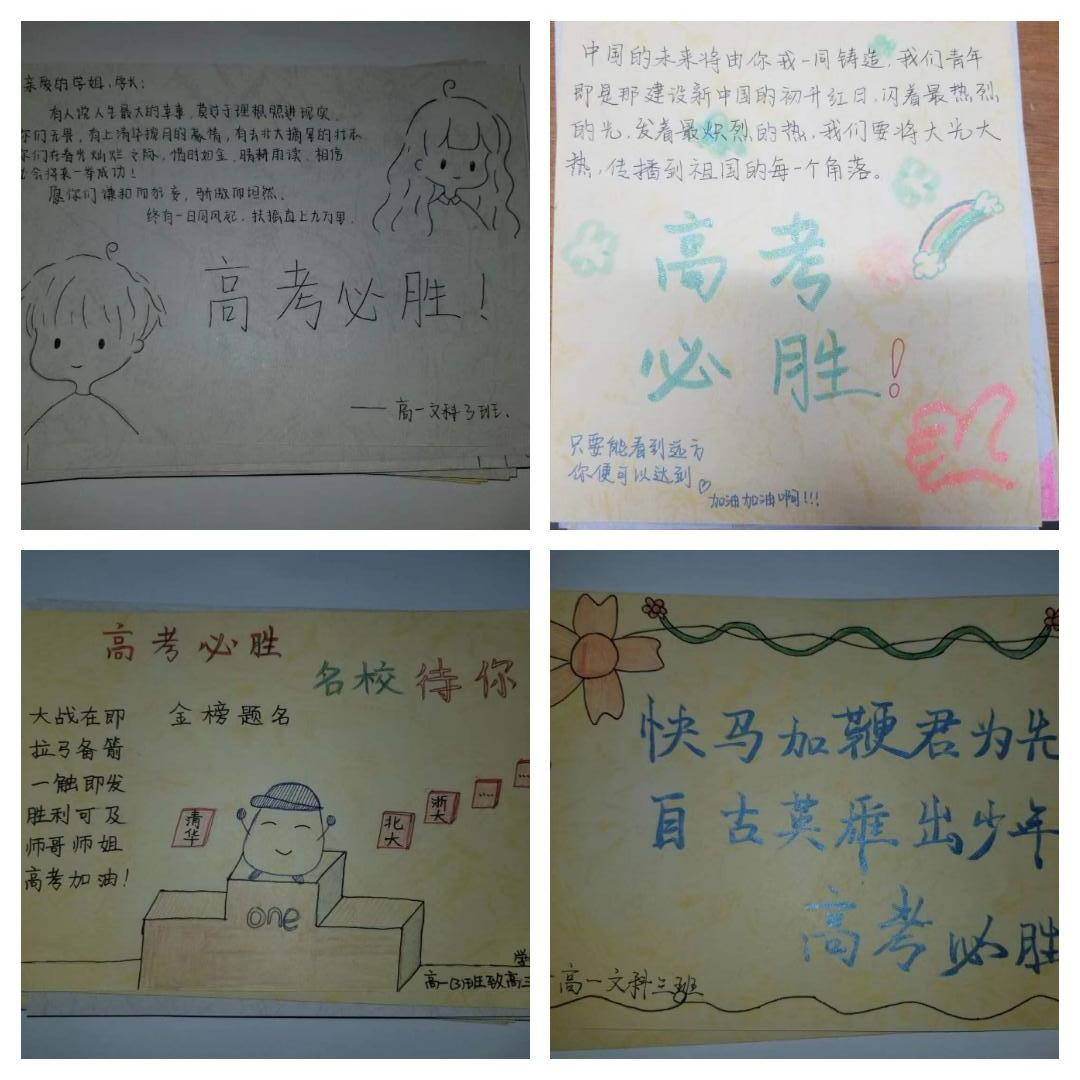 亲爱的学姐,学长:
有人说人生最大的幸事,莫过于理想照进现实.
你们无畏,有上清华揽月的豪情,有去北大摘星的壮志
你们在春光灿烂之际,惜时如金,精耕用读.相信
会得来一举成功!
愿你们谦和而好妄,骄傲而坦然.
终有一日同风起.扶摇直上九万里.
高考必胜!
——高一文科3班.
中国的未来将由你我一同铸造,我们青年
即是那建设新中国的初升红日,闪着最热烈
的光,发着最炽烈的热,我们要将大光大
热,传播到祖国的每一个角落。
高考
必胜!
只要能看到远方
你便可以达到
加油加油啊!!!
高考必胜
名校待你
金榜题名
大战在即
拉弓备箭
一触即发
胜利可及
师哥师姐
高考加油!
清华
北大
浙大
....
...
one
学
高一(3)班致高三
快马加鞭君为先
自古英雄出少年
高考必胜
高一文科三班